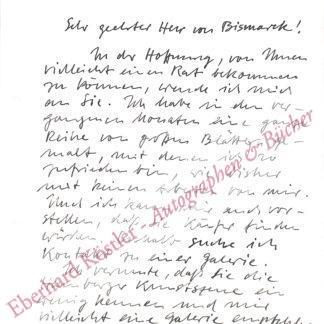 Sehr geehrter Herr von Bismarck!
In der Hoffnung, von Ihnen
vielleicht einen Rat bekommen
zu können, wende ich mich
an Sie. Ich habe in den ver-
gangenen Monaten eine ganze
Reihe von großen Blättern ge-
malt, mit denen ich so
zufrieden bin, wie bisher
mit keinen von mir.
Und ich kann mir auch vor-
stellen, daß sie Käufer finden
würden. Deshalb suche ich
Kontakt zu einer Galerie.
Ich vermute, daß Sie die
Hamburger Kunstszene ein
wenig kennen und mir
vielleicht eine Galerie empfehlen
Eberhard Köstler - Autographen & Bücher